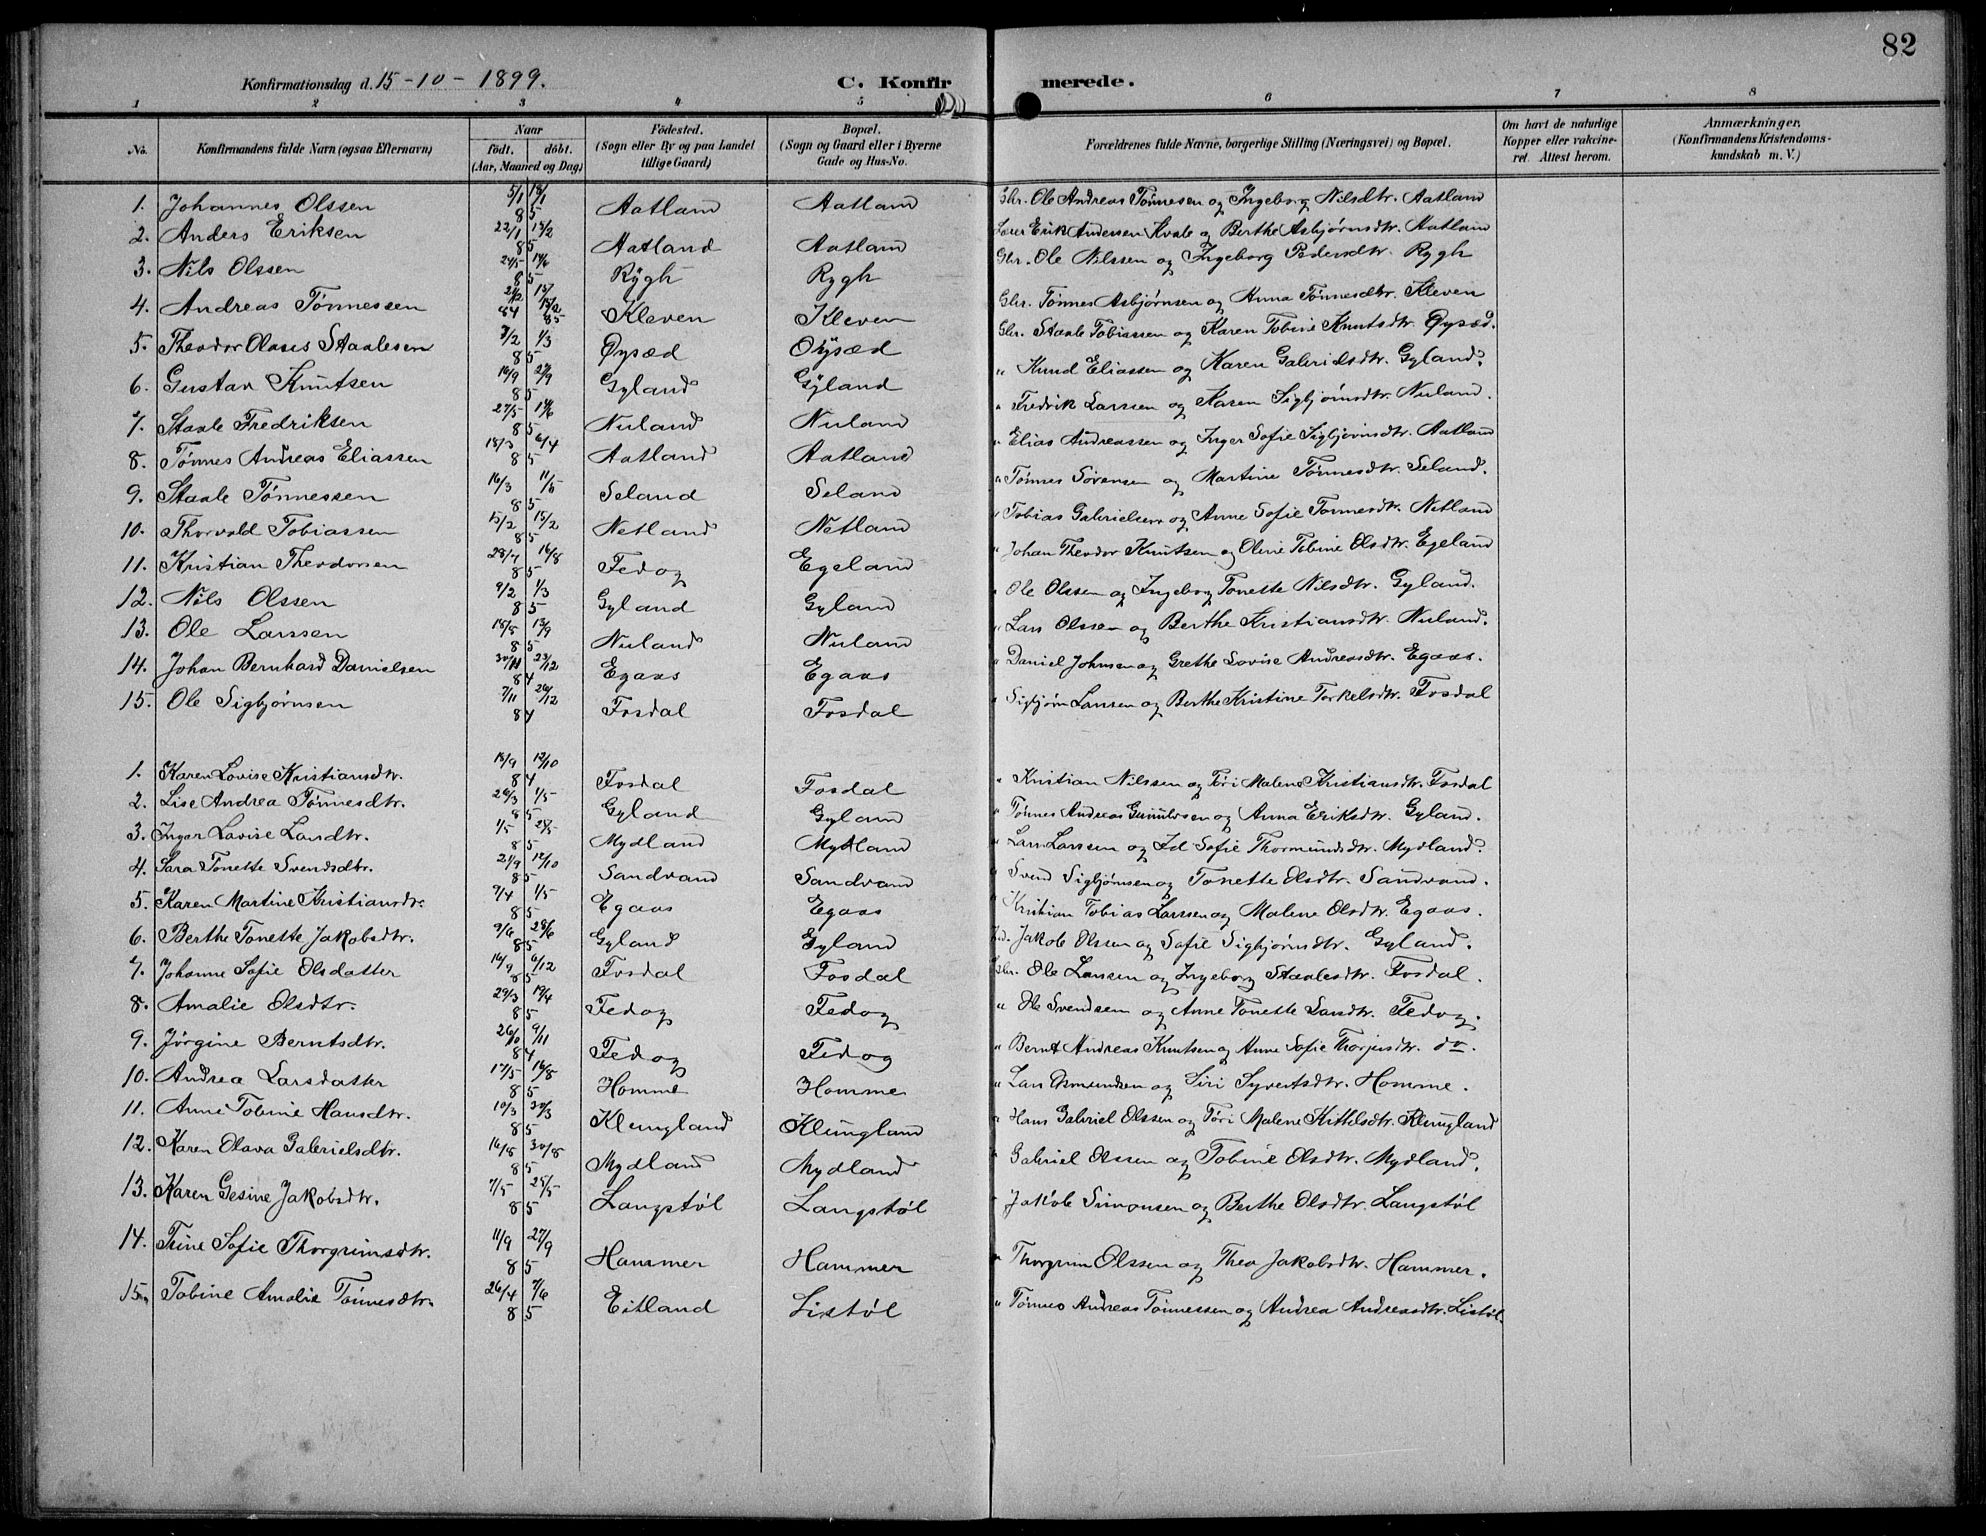 82
Konfirmationsdag d. 15-10-1899. C. Konfirmerede.
1 2 3 4 5 6 7 8
No. Konfirmandens fulde Navn (ogsaa Efternavn) Naar født. døbt. (Aar, Maaned og Dag) Fødested. (Sogn eller By og paa Landet tillige Gaard) Bopæl. (Sogn og Gaard eller i Byerne Gade og Hus-No. Forældrenes fulde Navne, borgerlige Stilling (Næringsvei) og Bopæl. Om havt de naturlige Kopper eller vakcineret. Attest herom. Anmærkninger. (Konfirmandens Kristendomskundskab m. V.)
1. Johannes Olssen 5/1 18/1 85 Aatland Aatland Gbr. Ole Andreas Tønnesen og Ingeborg Nilsdtr. Aatland
2. Anders Eriksen 22/1 15/2 85 Aatland Aatland Lærer Erik Andersen Kvale og Berthe Asbjørnsdtr. Aatland
3. Nils Olssen 24/5 14/6 85 Rygh Rygh Gbr. Ole Nilssen og Ingeborg Pedersdtr. Rygh
4. Andreas Tønnessen 84 85 Kleven Kleven Gbr. Tønnes Asbjørnsen og Anna Tønnesdtr. Kleven
5. Theodor Olaus Staalesen 7/2 1/3 85 Øysæd Øysæd Gbr. Staale Tobiassen og Karen Tobine Knutsdtr. Øysæd.
6. Gustav Knutsen 16/9 27/9 85 Gyland Gyland " Knud Eliassen og Karen Gabrielsdtr. Gyland.
7. Staale Fredriksen 27/5 14/6 85 Nuland Nuland " Fredrik Larssen og Karen Sigbjørnsdtr. Nuland.
8. Tønnes Andreas Eliassen 18/3 6/4 85 Aatland Aatland " Elias Andreassen og Inger Sofie Sigbjørnsdtr. Aatland
9. Staale Tønnessen 16/3 11/5 85 Seland Seland " Tønnes Sørensen og Martine Tønnesdtr. Seland.
10. Thorvald Tobiassen 15/2 85 Netland Netland " Tobias Gabrielsen og Anne Sofie Tønnesdtr. Netland
11. Kristian Theodorsen 28/7 16/8 85 Fedog Egeland " Johan Theodor Knutsen og Oline Tobine Olsdtr. Egeland
12. Nils Olssen 9/2 1/3 85 Gyland Gyland " Ole Olssen og Ingeborg Tonette Nilsdtr. Gyland.
13. Ole Larssen 13/9 85 Nuland Nuland " Lars Olssen og Berthe Kristiansdtr. Nuland.
14. Johan Bernhard Danielsen 30/11 23/12 84 Egaas Egaas " Daniel Johnsen og Grethe Lovise Andreasdtr. Egaas.
15. Ole Sigbjørnsen 7/11 26/12 84 Fosdal Fosdal " Sigbjørn Larssen og Berthe Kristine Torkelsdtr. Fosdal
1. Karen Lovise Kristiansdtr. 12/10 84 Fosdal Fosdal " Kristian Nilssen og Tøri Malene Kristiansdtr. Fosdal
2. Lise Andrea Tønnesdtr. 26/3 1/5 85 Gyland Gyland " Tønnes Andreas Gunulvsen og Anna Eriksdtr. Gyland.
3. Inger Lovise Larsdtr. 1/5 85 Mydland Mydland " Lars Larssen og Sofie Thormundsdtr. Mydland.
4. Sara Tonette Svendsdtr. 21/9 12/10 85 Sandvand Sandvand " Svend Sigbjørnsen og Tonette Olsdtr. Sandvand.
5. Karen Martine Kristiansdtr. 7/4 1/5 85 Egaas Egaas " Kristian Tobias Larssen og Malene Olsdtr. Egaas.
6. Berthe Tonette Jakobsdtr. 9/6 28/6 85 Gyland Gyland Jakob Olssen og Sofie Sigbjørnsdtr. Gyland.
7. Johanne Sofie Olsdatter 16/9 6/12 85 Fosdal Fosdal Gbr. Ole Larssen og Ingeborg Staalesdtr. Fosdal.
8. Amalie Olsdtr. 29/3 19/4 85 Fedog Fedog " Ole Svendsen og Anne Tonette Larsdtr. Fedog.
9. Jørgine Berntsdtr. 26/10 9/11 84 Fedog Fedog " Bernt Andreas Knutsen og Anne Sofie Thorjusdtr. do.
10. Andrea Larsdatter 17/5 16/8 85 Homme Homme " Lars Osmundsen og Siri Syvertsdtr. Homme.
11. Anne Tobine Hansdtr. 10/3 30/3 85 Klungland Klungland " Hans Gabriel Olssen og Tøri Malene Kittilsdtr. Klungland
12. Karen Olava Gabrielsdtr. 16/8 30/8 85 Mydland Mydland " Gabriel Olssen og Tobine Olsdtr. Mydland.
13. Karen Gesine Jakobsdtr. 7/5 25/5 85 Langstøl Langstøl " Jakob Simonsen og Berthe Olsdtr. Langstøl
14. Trine Sofie Thorgrimsdtr. 11/9 27/9 85 Hammer Hammer " Thorgrim Olssen og Thea Jakobsdtr. Hammer.
15. Tobine Amalie Tønnesdtr. 26/4 7/6 85 Eitland Listøl " Tønnes Andreas Tønnessen og Andrea Andreasdtr. Listøl.